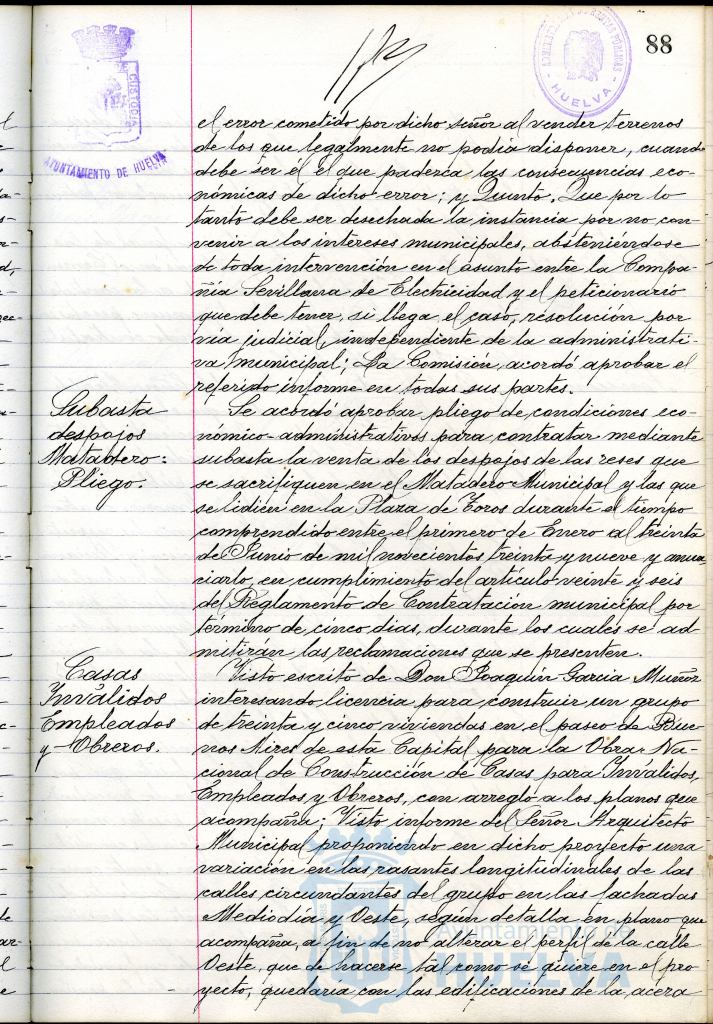 88
CUSTODIA
AYUNTAMIENTO DE HUELVA
HUELVA
el error cometido por dicho señor al vender terrenos
de los que legalmente no podía disponer, cuando
debe ser él el que padezca las consecuencias eco-
nómicas de dicho error; y Quinto. Que por lo
tanto debe ser desechada la instancia por no con-
venir a los intereses municipales, absteniéndose
de toda intervención en el asunto entre la Compa-
ñía Sevillana de Electricidad y el peticionario
que debe tener, si llega el caso, resolución por
vía judicial, independiente de la administrati-
va municipal; La Comisión, acordó aprobar el
referido informe en todas sus partes.
Subasta
despojos
Matadero:
Pliego.
Se acordó aprobar pliego de condiciones eco-
nómico-administrativas para contratar mediante
subasta la venta de los despojos de las reses que
se sacrifiquen en el Matadero Municipal y las que
se lidien en la Plaza de Toros durante el tiempo
comprendido entre el primero de Enero al treinta
de Junio de mil novecientos treinta y nueve y anun-
ciarlo, en cumplimiento del artículo veinte y seis
del Reglamento de Contratación municipal por
término de cinco dias, durante los cuales se ad-
mitirán las reclamaciones que se presenten.
Casas
Inválidos
Empleados
y Obreros.
Visto escrito de Don Joaquín García Muñoz
interesando licencia para construir un grupo
de treinta y cinco viviendas en el paseo de Bue-
nos Aires de esta Capital para la Obra Na-
cional de Construcción de Casas para Inválidos,
Empleados y Obreros, con arreglo a los planos que
acompaña; Visto informe del Señor Arquitecto
Municipal proponiendo en dicho proyecto una
variación en las rasantes longitudinales de las
calles circundantes del grupo en las fachadas
Mediodía y Oeste, según detalla en plano que
acompaña, a fin de no alterar el perfil de la calle
Oeste, que de hacerse tal como se quiere en el pro-
yecto, quedaría con las edificaciones de la acera
Ayuntamiento de
HUELVA